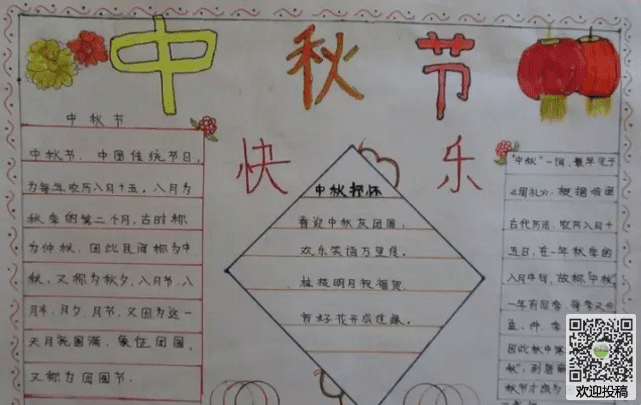 中秋节
快乐
中秋节
中秋节,中国传统节日,
为每年农历八月十五。八月为
秋季的第二个月,古时称
为仲秋,因此民间称为中
秋,又称为秋夕,八月节,八
月半,月夕,月节,又因为这一
天月亮圆满,象征团圆,
又称为团圆节。
中秋抒怀
喜迎中秋友团圆,
欢乐笑语万里
桂枝明月祝福贺
贺好花开瓜
"中秋"一词,最早见于
《周礼》。根据我国
古代历法,农历八月十
五日,在一年秋季的
八月中旬,故称"中秋"
一年有四季,每季又分
孟、仲、季
因此秋中第
秋",到唐朝
秋节才成为
欢迎投稿